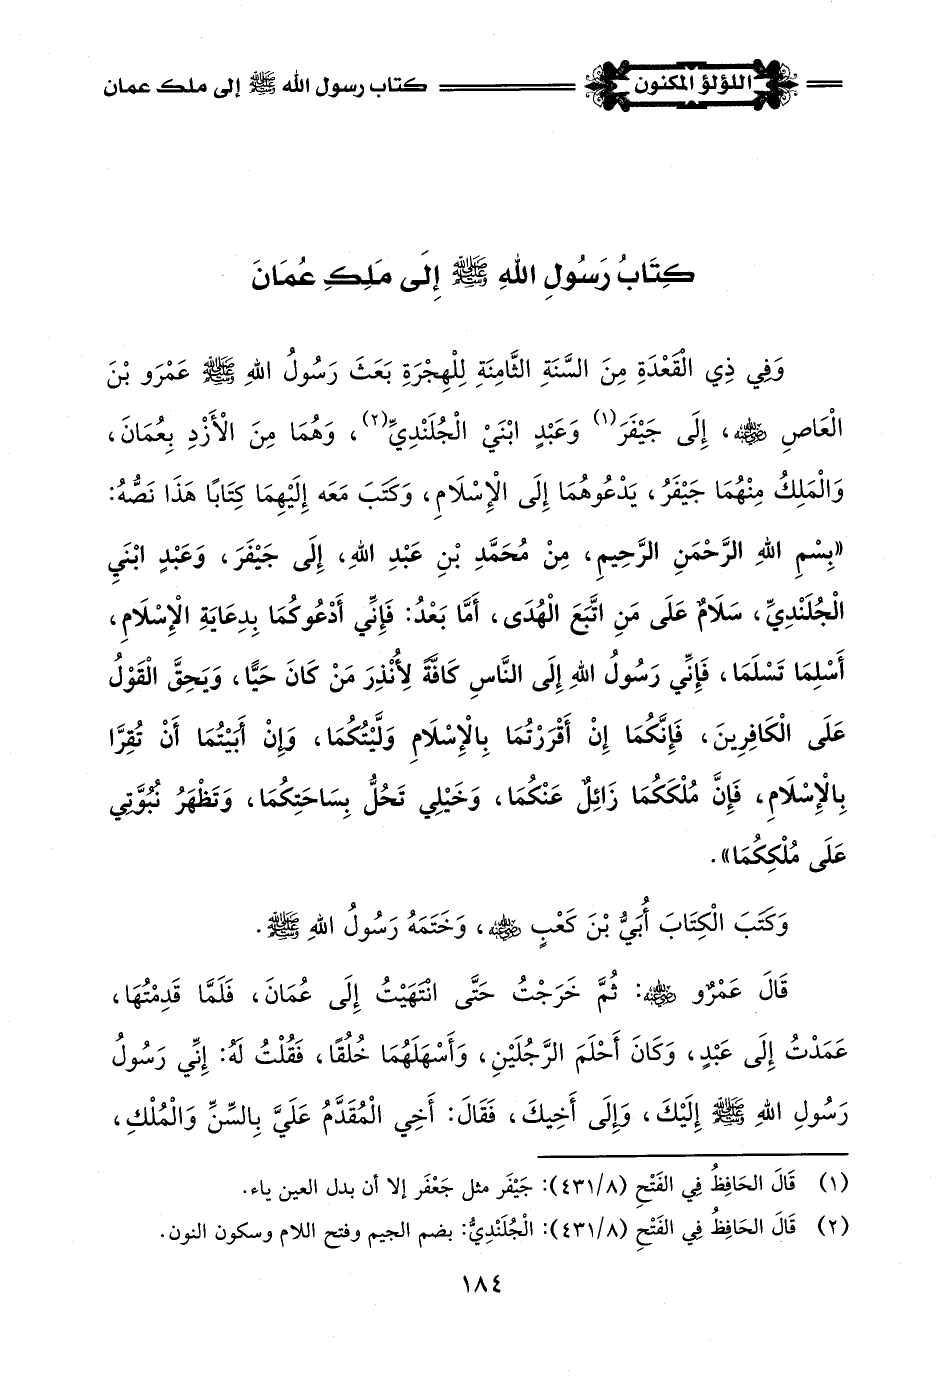 اللؤلؤ المكنون كتاب رسول الله ﷺ إلى ملك عمان
كِتَابُ رَسُولِ اللهِ ﷺ إِلَى مَلِكِ عُمَانَ
وَفِي ذِي الْقَعْدَةِ مِنَ السَّنَةِ الثَّامِنَةِ لِلْهِجْرَةِ بَعَثَ رَسُولُ اللهِ ﷺ عَمْرَو بْنَ
الْعَاصِ رضي الله عنه، إِلَى جَيْفَرَ(١) وَعَبْدِ ابْنَيْ الْجُلَنْدِيِّ(٢)، وَهُمَا مِنَ الْأَزْدِ بِعُمَانَ،
وَالْمَلِكُ مِنْهُمَا جَيْفَرُ، يَدْعُوهُمَا إِلَى الْإِسْلَامِ، وَكَتَبَ مَعَه إِلَيْهِمَا كِتَابًا هَذَا نَصُّهُ:
«بِسْمِ اللهِ الرَّحْمَنِ الرَّحِيمِ، مِنْ مُحَمَّدِ بْنِ عَبْدِ اللهِ، إِلَى جَيْفَرَ، وَعَبْدِ ابْنَيِ
الْجُلَنْدِيِّ، سَلَامٌ عَلَى مَنِ اتَّبَعَ الْهُدَى، أَمَّا بَعْدُ: فَإِنِّي أَدْعُوكُمَا بِدِعَايَةِ الْإِسْلَامِ،
أَسْلِمَا تَسْلَمَا، فَإِنِّي رَسُولُ اللهِ إِلَى النَّاسِ كَافَّةً لِأُنْذِرَ مَنْ كَانَ حَيًّا، وَيَحِقَّ الْقَوْلُ
عَلَى الْكَافِرِينَ، فَإِنَّكُمَا إِنْ أَقْرَرْتُمَا بِالْإِسْلَامِ وَلَّيْتُكُمَا، وَإِنْ أَبَيْتُمَا أَنْ تُقِرَّا
بِالْإِسْلَامِ، فَإِنَّ مُلْكَكُمَا زَائِلٌ عَنْكُمَا، وَخَيْلِي تَحُلُّ بِسَاحَتِكُمَا، وَتَظْهَرُ نُبُوَّتِي
عَلَى مُلْكِكُمَا».
وَكَتَبَ الْكِتَابَ أُبَيُّ بْنَ كَعْبٍ رضي الله عنه، وَخَتَمَهُ رَسُولُ اللهِ ﷺ.
قَالَ عَمْرٌو رضي الله عنه: ثُمَّ خَرَجْتُ حَتَّى انْتَهَيْتُ إِلَى عُمَانَ، فَلَمَّا قَدِمْتُهَا،
عَمَدْتُ إِلَى عَبْدٍ، وَكَانَ أَحْلَمَ الرَّجُلَيْنِ، وَأَسْهَلَهُمَا خُلُقًا، فَقُلْتُ لَهُ: إِنِّي رَسُولُ
رَسُولِ اللهِ ﷺ إِلَيْكَ، وَإِلَى أَخِيكَ، فَقَالَ: أَخِي الْمُقَدَّمُ عَلَيَّ بِالسِّنِّ وَالْمُلْكِ،
(١) قَالَ الحَافِظُ فِي الفَتْحِ (٤٣١/٨): جَيْفَر مثل جَعْفَر إلا أن بدل العين ياء.
(٢) قَالَ الحَافِظُ فِي الفَتْحِ (٤٣١/٨): الْجُلَنْدِيُّ: بضم الجيم وفتح اللام وسكون النون.
١٨٤